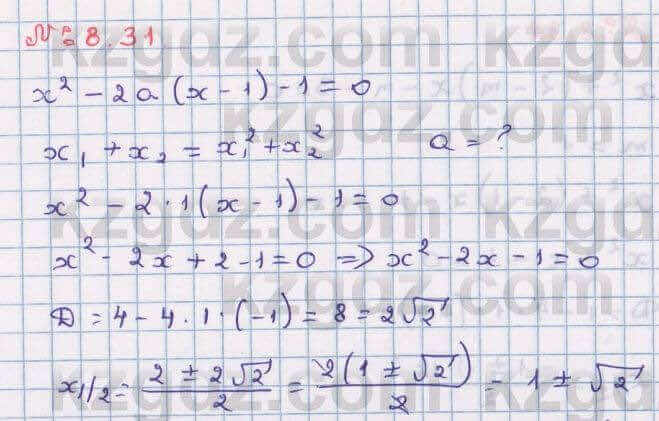 № 8.31
x² - 2a(x - 1) - 1 = 0
x₁ + x₂ = x₁² + x₂² a = ?
x² - 2 · 1(x - 1) - 1 = 0
x² - 2x + 2 - 1 = 0 => x² - 2x - 1 = 0
D = 4 - 4 · 1 · (-1) = 8 = 2√2
x₁/₂ = (2 ± 2√2)/2 = 2(1 ± √2)/2 = 1 ± √2